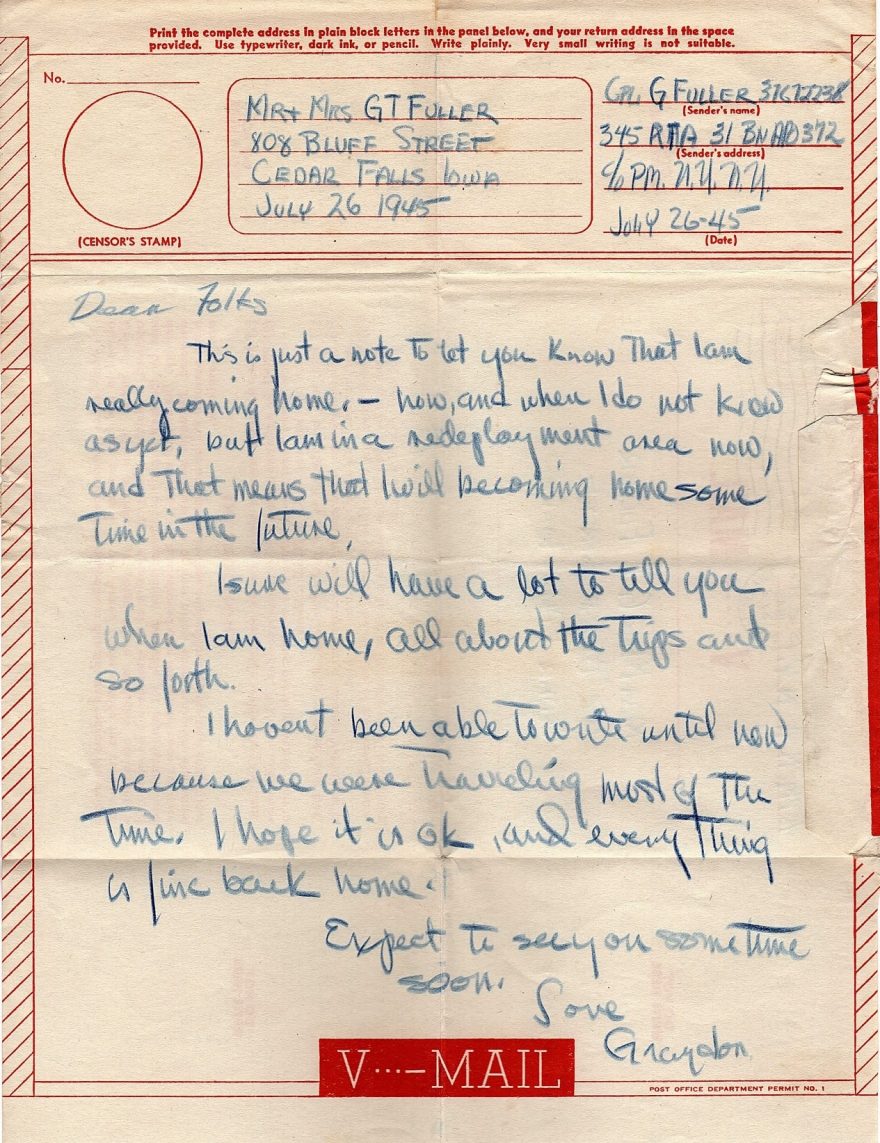 Print the complete address in plain block letters in the panel below, and your return address in the space
provided. Use typewriter, dark ink, or pencil. Write plainly. Very small writing is not suitable.
No.
(CENSOR'S STAMP)
MR + MRS G T FULLER
808 BLUFF STREET
CEDAR FALLS IOWA
JULY 26 1945
CPL G FULLER
(Sender's name)
345 31 BN APO 372
(Sender's address)
c/o PM. N.Y. N.Y.
JULY 26-45
(Date)
Dear Folks
This is just a note to let you know that I am
really coming home. — how, and when I do not know
as yet, but I am in a redeployment area now,
and that means that I will be coming home some
time in the future,
I sure will have a lot to tell you
when I am home, all about the trips and
so forth.
I havent been able to write until now
because we were traveling most of the
time. I hope it is ok, and every thing
is fine back home.
Expect to see you some time
soon.
Love
Graydon
V···—MAIL
POST OFFICE DEPARTMENT PERMIT NO. 1